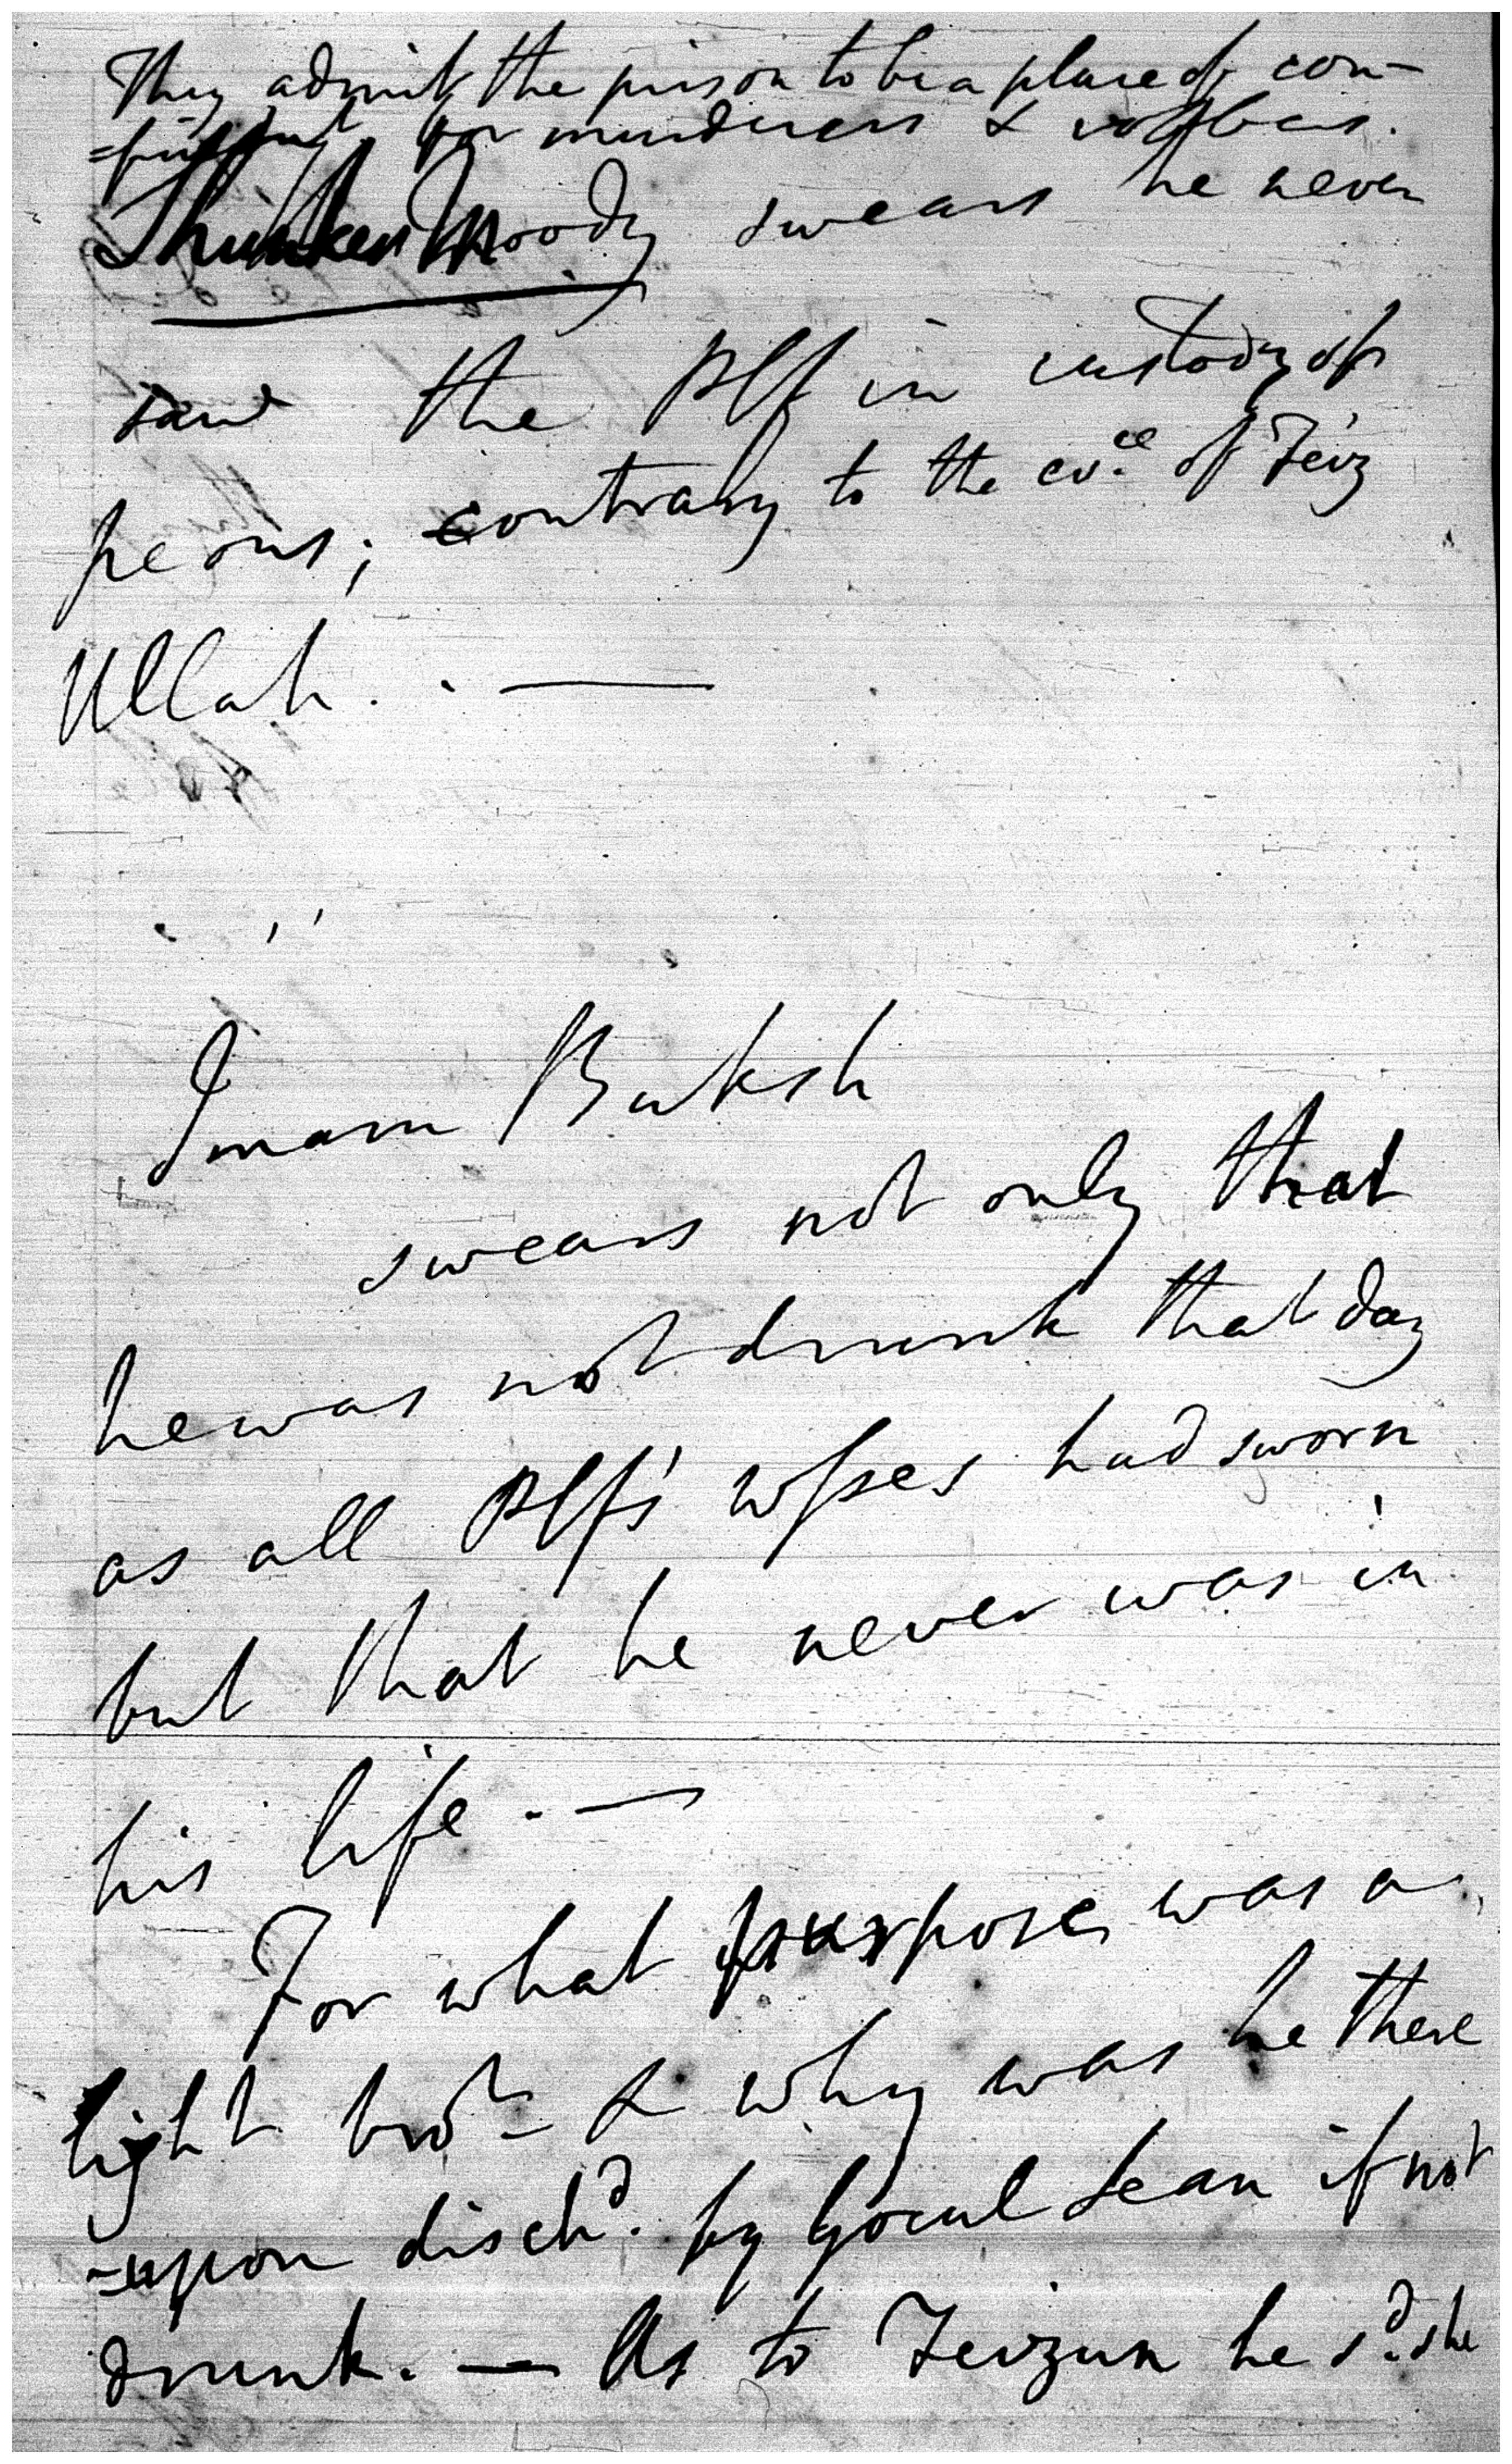 They admit the prison to be a place of con-
=finemt for murderers & robbers.
Thunker Moody swears he never
saw the Plf in custody of
peons; contrary to the evce. of Feiz
Ullah. . —
Imam Buksh
swears not only that
he was not drunk that day
as all Plfs' wsses had sworn
but that he never was in
his life. —
For what purpose was a
light brot. & why was he there
=upon dischd. by Gocul Sean if not
drunk. — As to Feizun he sd. she